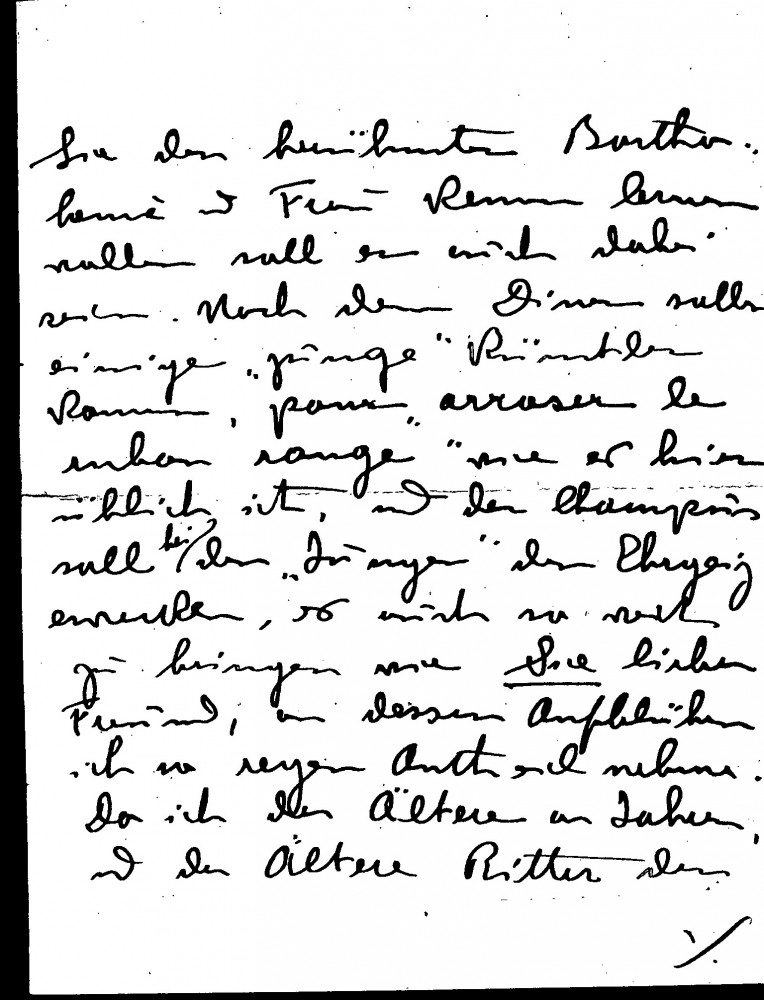 Sie den berühmten Bartho-
lomé u Frau kennen lernen
sollen soll er mich dabei
sein. Nach dem Diner sollen
einige „junge" Künstler
kommen, pour „arroser le
ruban rouge" wie es hier
üblich ist, und der Champus
soll bei den „Jungen" den Ehrgeiz
erwecken, es auch so weit
zu bringen wie Sie lieber
Freund, an dessen Aufblühen
ich so regen Antheil nehme.
Da ich der Ältere an Jahren,
u der Ältere Ritter der
./.